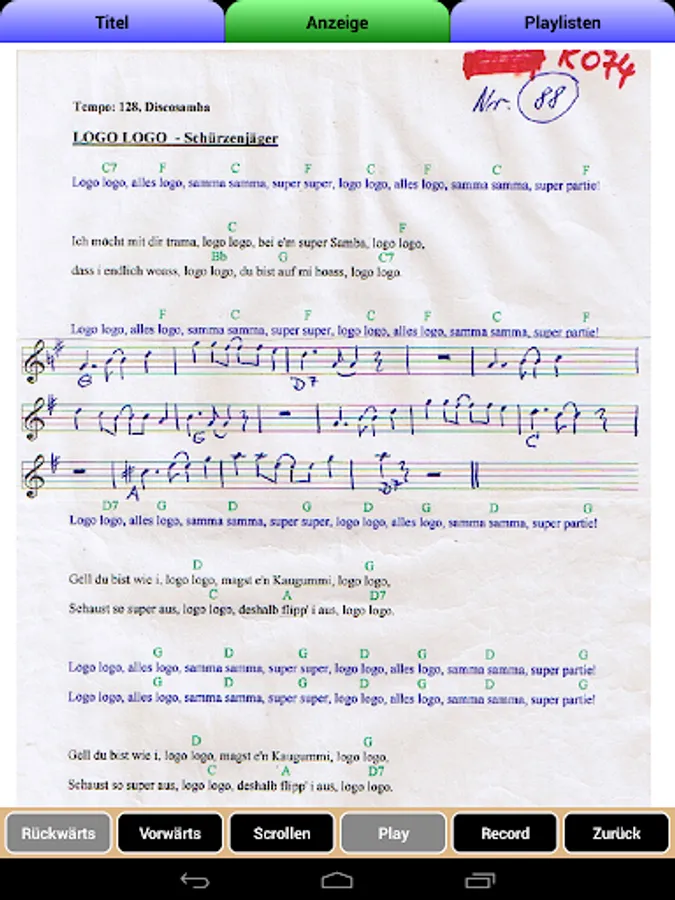 Titel Anzeige Playlisten
KO74
Nr. 88
Tempo: 128, Discosamba
LOGO LOGO - Schürzenjäger
C7 F C F C F C F
Logo logo, alles logo, samma samma, super super, logo logo, alles logo, samma samma, super partie!
C F
Ich möcht mit dir trama, logo logo, bei e'm super Samba, logo logo,
Bb G C7
dass i endlich woass, logo logo, du bist auf mi hoass, logo logo.
F C F C F C F
Logo logo, alles logo, samma samma, super super, logo logo, alles logo, samma samma, super partie!
G D7
G C
A D7
D7 G D G D G D G
Logo logo, alles logo, samma samma, super super, logo logo, alles logo, samma samma, super partie!
D G
Gell du bist wie i, logo logo, magst e'n Kaugummi, logo logo,
C A D7
Schaust so super aus, logo logo, deshalb flipp' i aus, logo logo.
G D G D G D G
Logo logo, alles logo, samma samma, super super, logo logo, alles logo, samma samma, super partie!
G D G D G D G
Logo logo, alles logo, samma samma, super super, logo logo, alles logo, samma samma, super partie!
D G
Gell du bist wie i, logo logo, magst e'n Kaugummi, logo logo,
C A D7
Schaust so super aus, logo logo, deshalb flipp' i aus, logo logo.
Rückwärts Vorwärts Scrollen Play Record Zurück